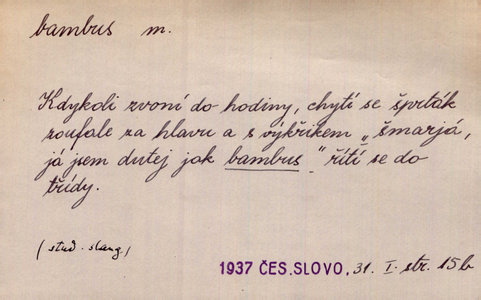 bambus m.
Kdykoli zvoní do hodiny, chytí se šprťák
zoufale za hlavu a s výkřikem „šmarjá,
já jsem dutej jak bambus" řítí se do
třídy.
(stud. slang.)
1937 ČES. SLOVO, 31. I. str. 15b